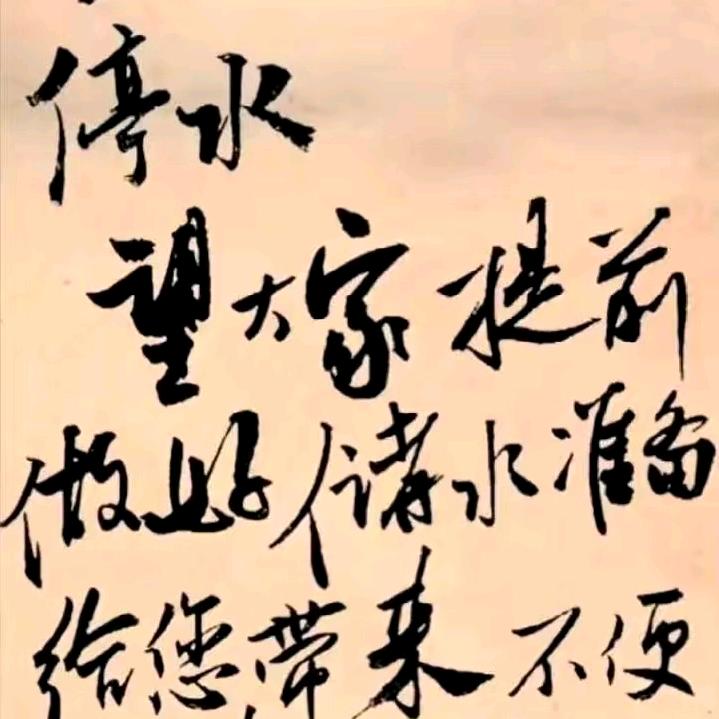 停水
望大家提前
做好储水准备
给您带来不便